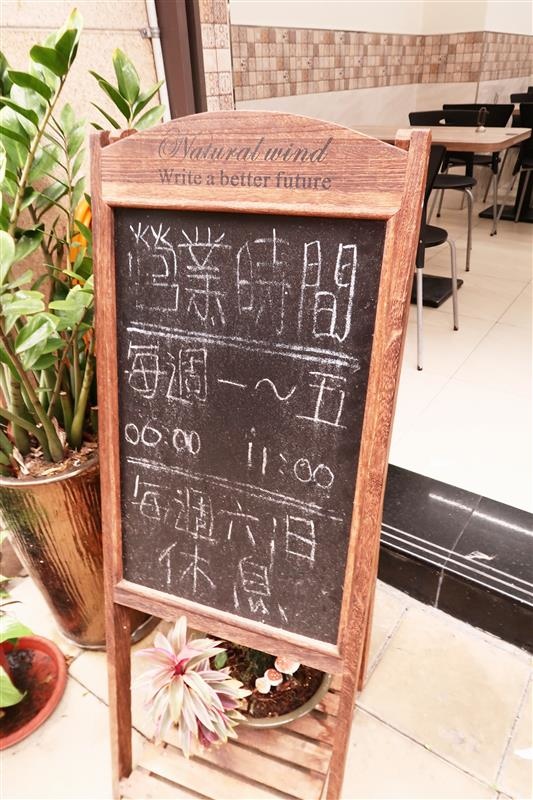 Natural wind
Write a better future
營業時間
每週一～五
00:00 11:00
每週六.日
休息